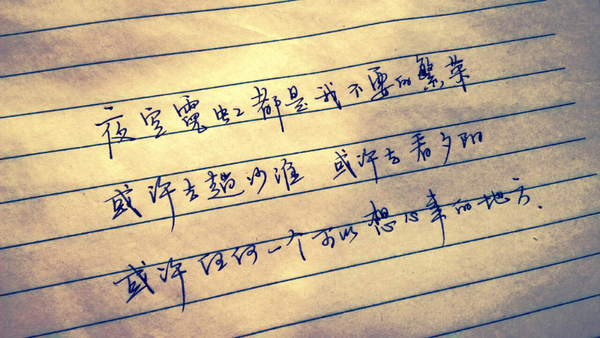 夜空霓虹都是我不要的繁荣
或许去趟沙滩 或许去看夕阳
或许任何一个可以想心事的地方.